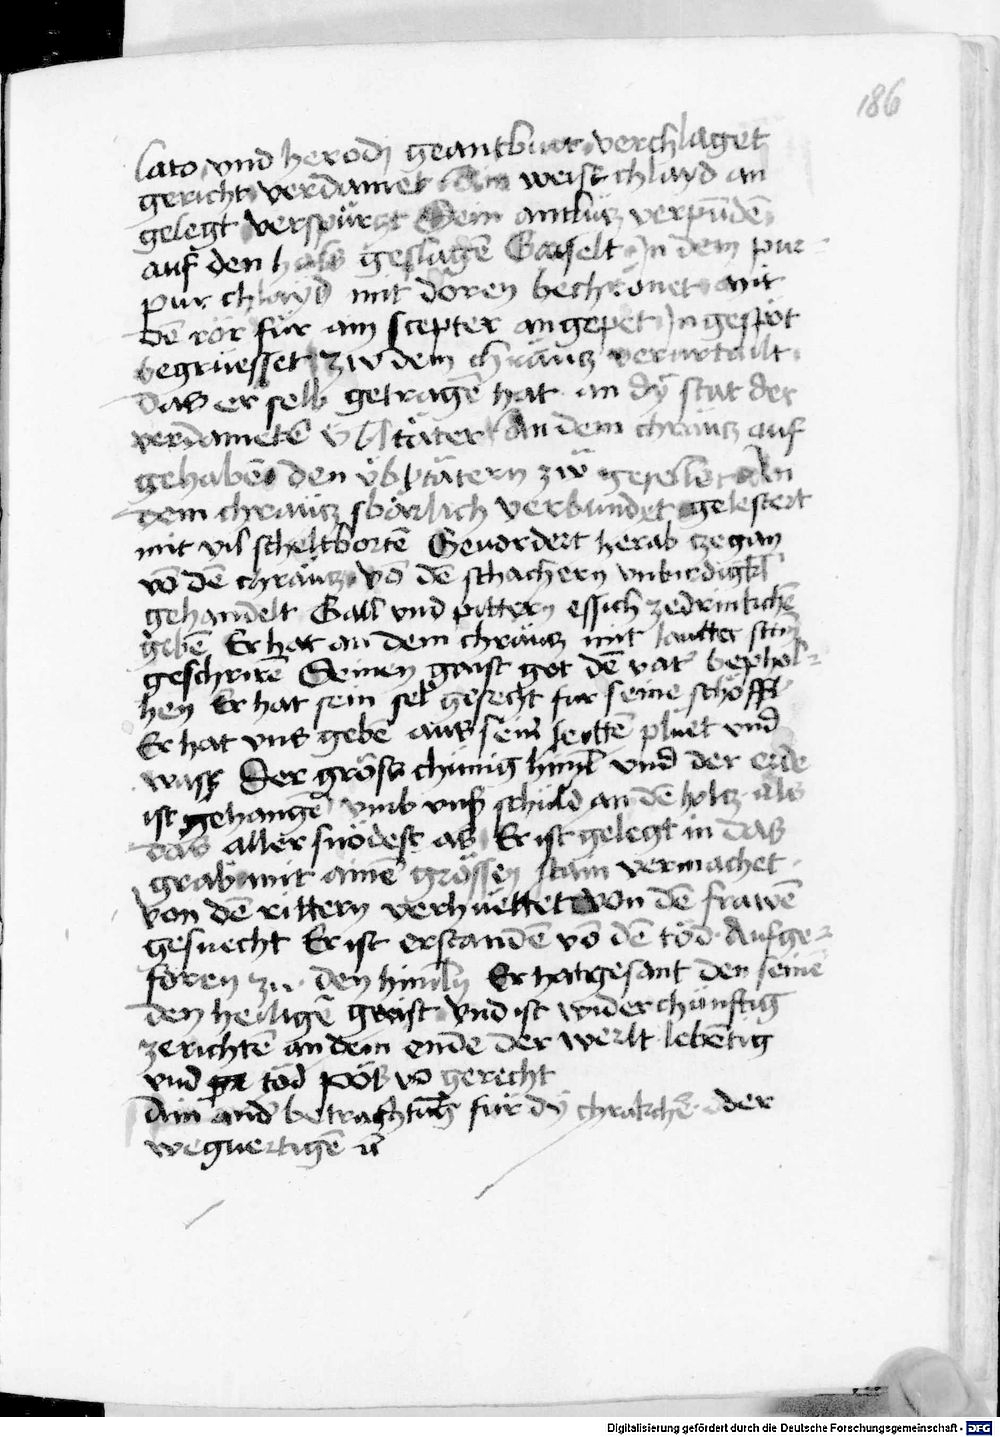 186
lato vnd herodi geantburt verchlaget
gericht verdamet Ein weiss chlayd an
gelegt verspürtzt Sein antlütz verpūdē
auf den hals geslagē Gaiselt In dem pur-
pur chlayd mit dören bechrönet mit
dē rör für ain scepter angepet In gespöt
begrüesset zw dem chräutz verurtailt
Das er selb getragē hat an dy stat der
verdametē übltäter An dem chräutz auf
gehabē den übltätern zw gesellet An
dem chräutz sbärlich verbundet gelestert
mit vil scheltbortē Geuordert herab czegan
võ dē chräutz võ dē schachern vnbirdigkl
gehandelt Gall vnd pittern essich zedrinkchē
gebē Er hat an dem chräutz mit lautter stim
geschrirē Seinen gaist got dē vat bephol-
hen Er hat sein sel gesecht fur seine schöffl
Er hat vns gebē aus sein seittē pluet vnd
wass Der gröss chünig himl vnd der erde
ist gehangē vmb vnss schuld an dē holtz als
das aller snödest as Er ist gelegt in das
grab mit ainē grössen stain vermachet
von dē rittern verhüettet von dē frawē
gesuecht Er ist erstandē võ dē töd Aufge-
foren zu den himln Er hat gesant den seinē
den heiligē geist vnd ist widerchünftig
zerichtē an dem ende der werlt lebētig
vnd töd pös vō gerecht
Ain and betrachtūg für dy chrakchē oder
weguertigē ū
Digitalisierung gefördert durch die Deutsche Forschungsgemeinschaft - DFG